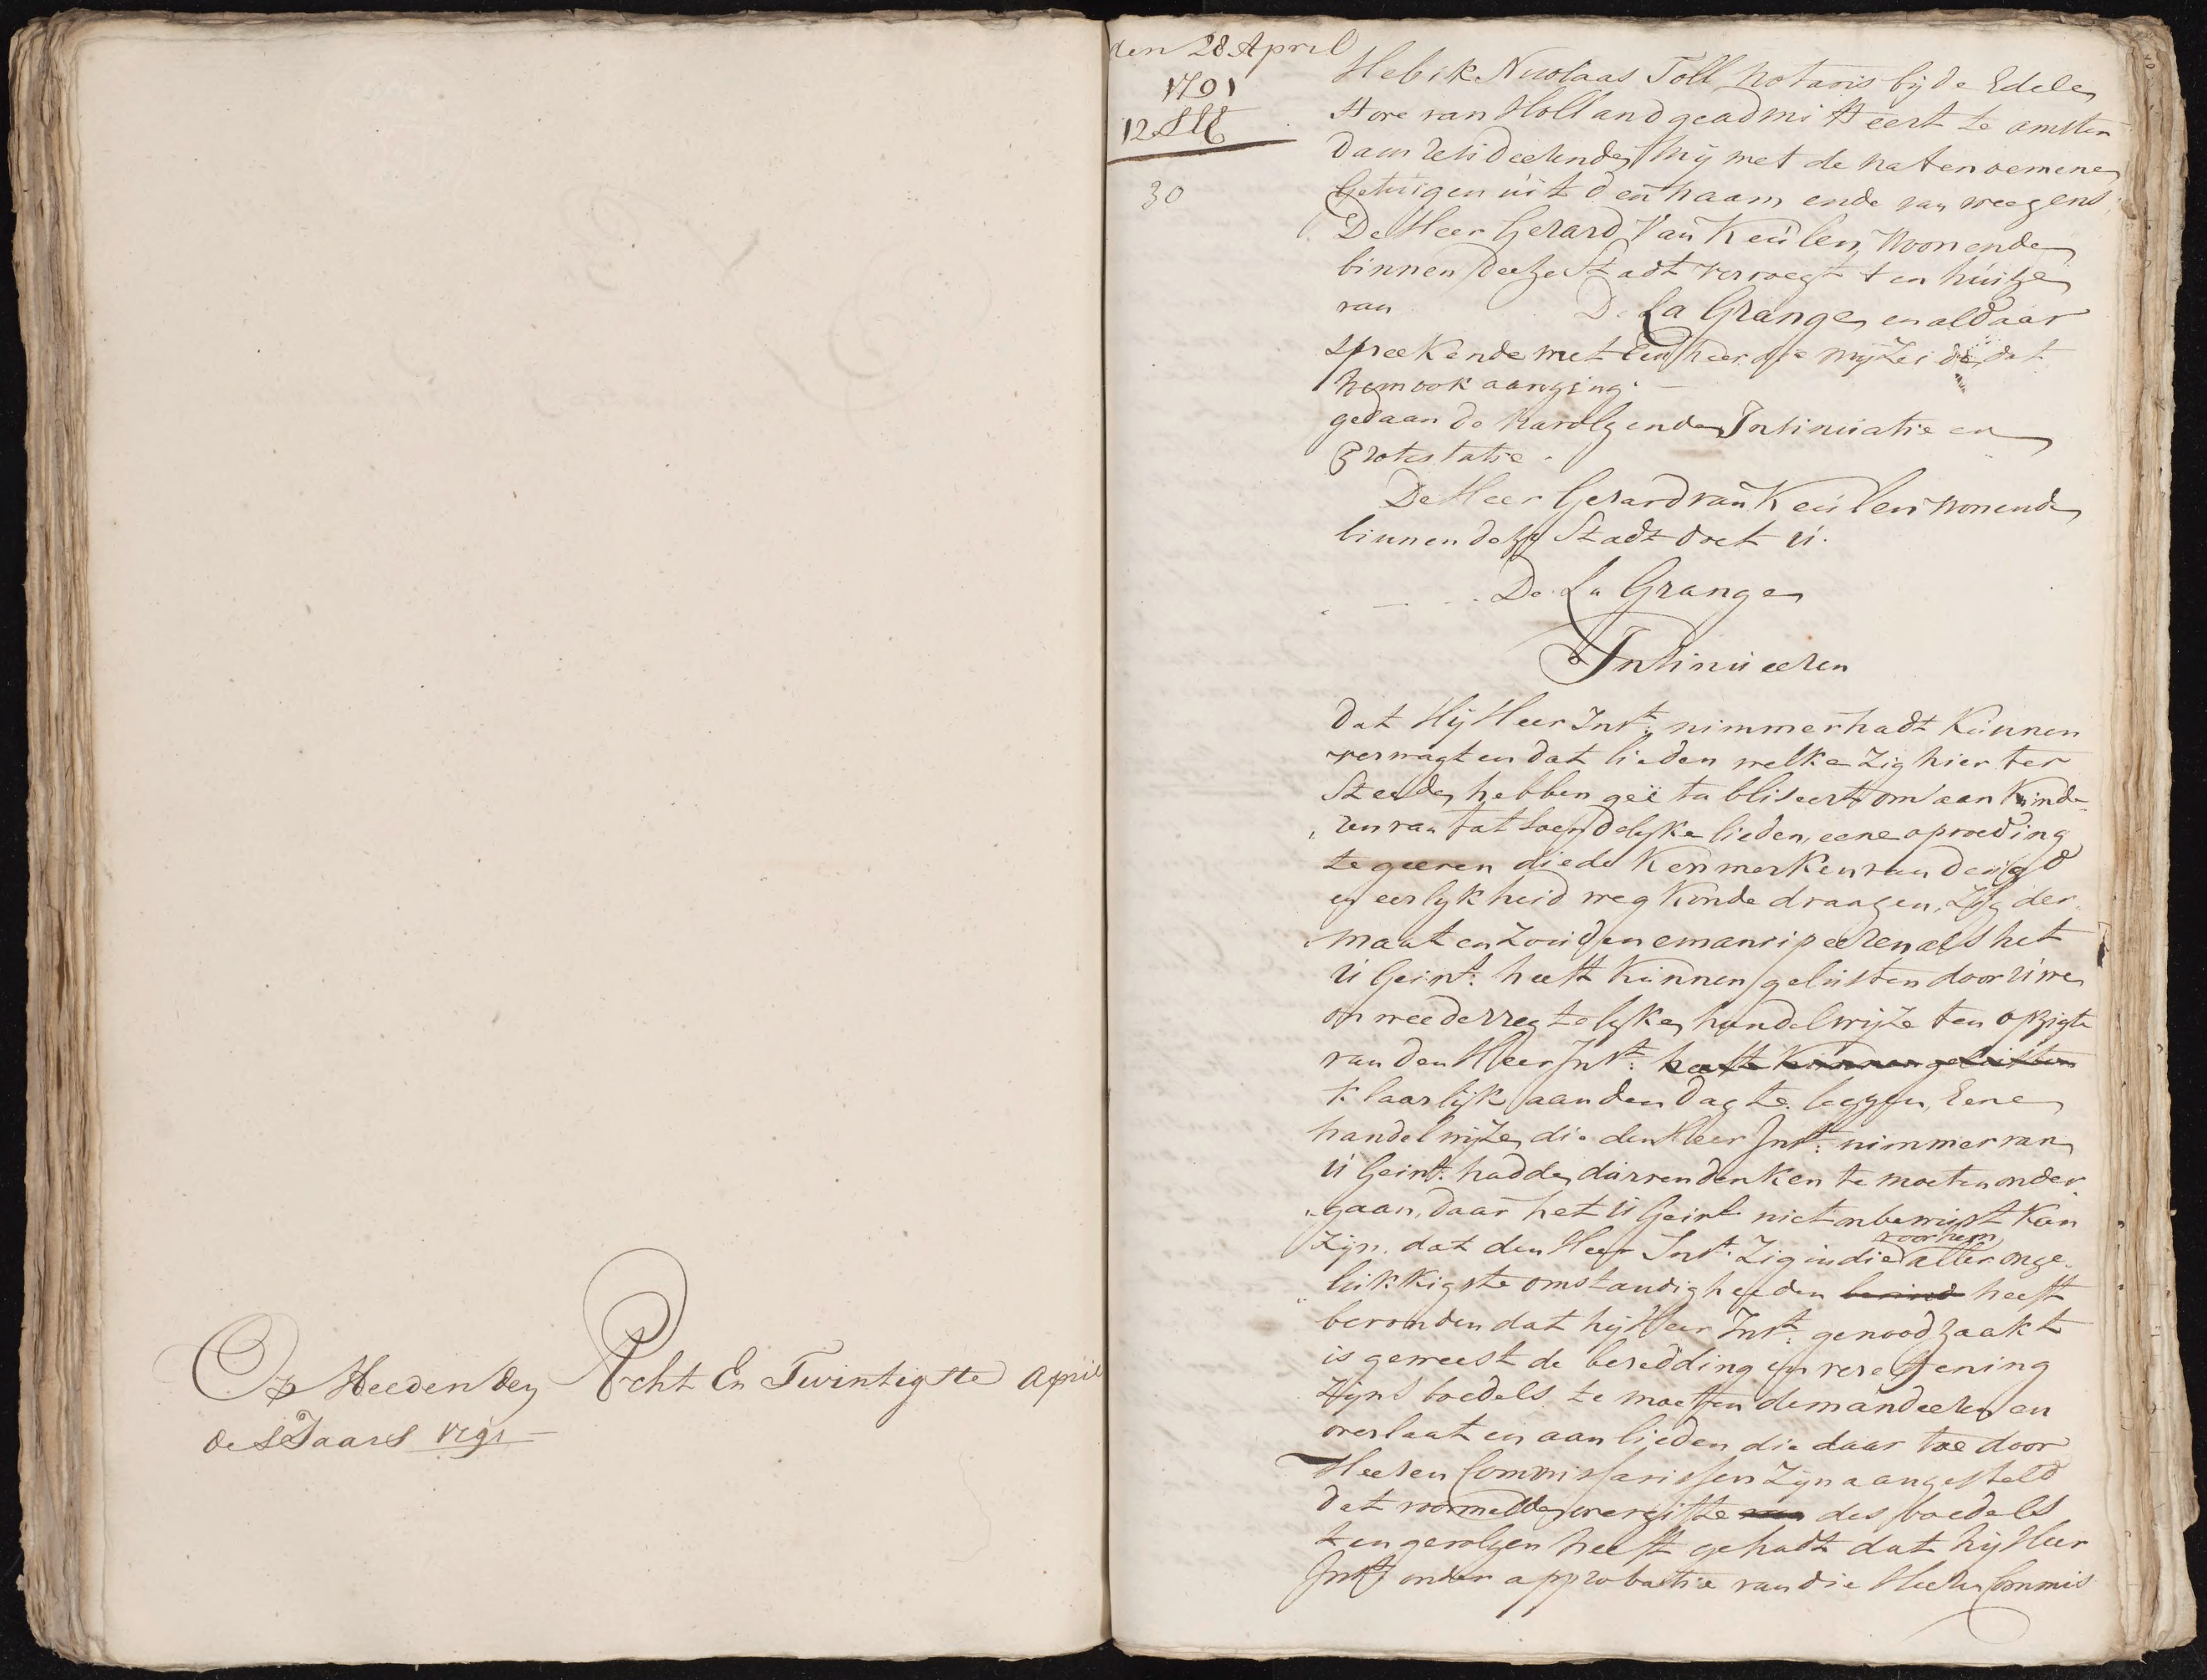 Op Heeden den Acht En Twintigste April
des Jaars 1791
den 28 April
1791
12. St
30
Heb ik Nicolaas Toll Notaris bij de Edele
Hove van Holland geadmitteert te amster
dam resideerende, mij met de natenoemene
Getuigen uit den Naam ende van weegens
De Heer Gerard Van Keulen woonende
binnen deeze Stadt vervoegt ten huize
van D. La Grange en aldaar
spreekende met een heer die mij zeide dat
hem ook aanging
gedaan de Navolgende Insinuatie en
Protestatie.
De Heer Gerard van Keulen wonende
binnen deze Stadt doet U.
De La Grange
Insinueeren
dat Hij Heer Inst: nimmer hadt kunnen
verwagten dat lieden welke zig hier ter
Steede hebben geëtabliseert om aan kinde
ren van fatsoendelyke lieden eene opvoeding
te geeven die de Kenmerken van deugd
en eerlykheid weg konde draagen, zig der
maaten zouden emancipeeren als het
U Geinst: heeft kunnen gelusten door uwe
onweederregtelyke handelwijze ten opzigte
van den Heer Inst: heeft kunnen gelusten
klaarlijk aan den dag te leggen, Eene
handelwijze die den Heer Inst: nimmer van
U Geinst: hadde durven denken te moeten onder
gaan, daar het U Geinst niet onbewust kan
zijn dat den Heer Inst: zig in die voor hem aller onge
lukkigste omstandigheeden bevind heeft
bevonden dat hij Heer Inst: genoodzaakt
is geweest de beredding en vereffening
zijns boedels te moeten demandeeren en
overlaaten aan lieden die daar toe door
Heeren Commissarissen zijn aangesteld
dat voormelde overgifte van des boedels
ten gevolgen heeft gehadt dat hij Heer
Inst: onder approbatie van die Heeren Commis